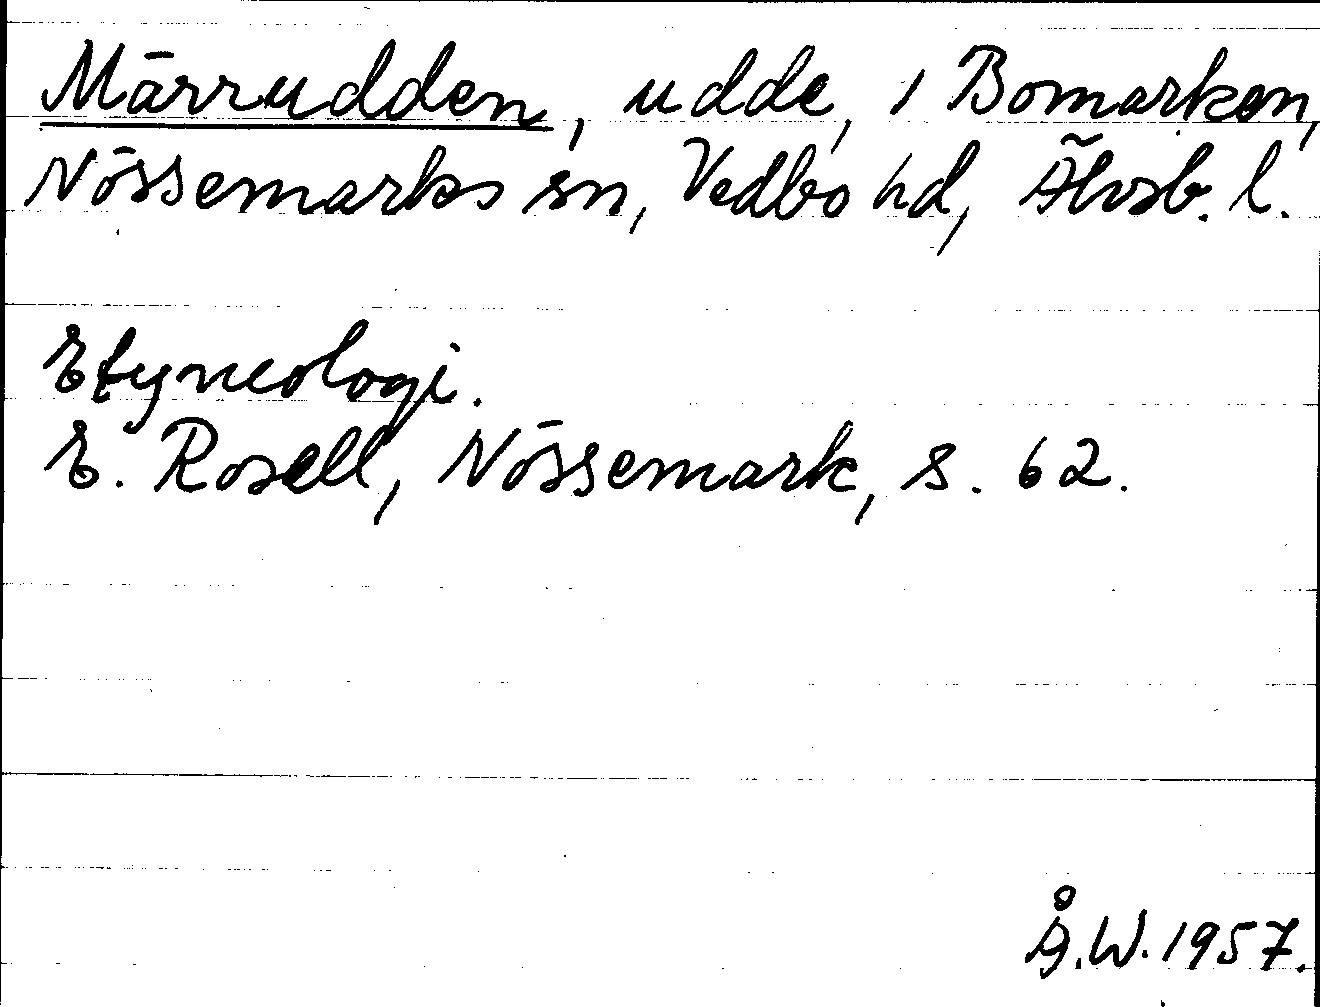 Märrudden, udde, i Bomarken,
Nössemarks sn, Vedbo hd, Älvsb. l.
Etymologi.
E. Rosell, Nössemark, s. 62.
Å.W. 1957.